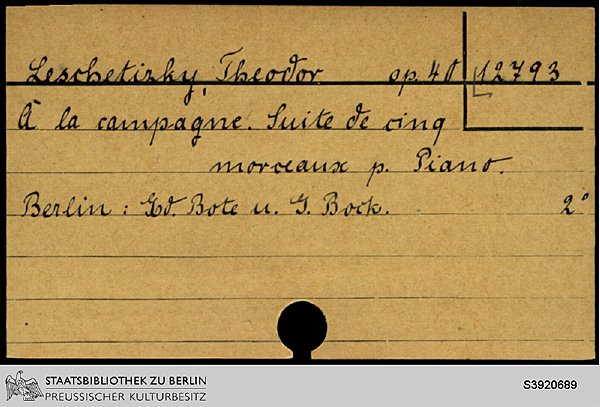 Leschetizky, Theodor op. 40 12793
À la campagne. Suite de cinq
morceaux p. Piano.
Berlin: Ed. Bote u. G. Bock. 2°
STAATSBIBLIOTHEK ZU BERLIN
PREUSSISCHER KULTURBESITZ
S3920689